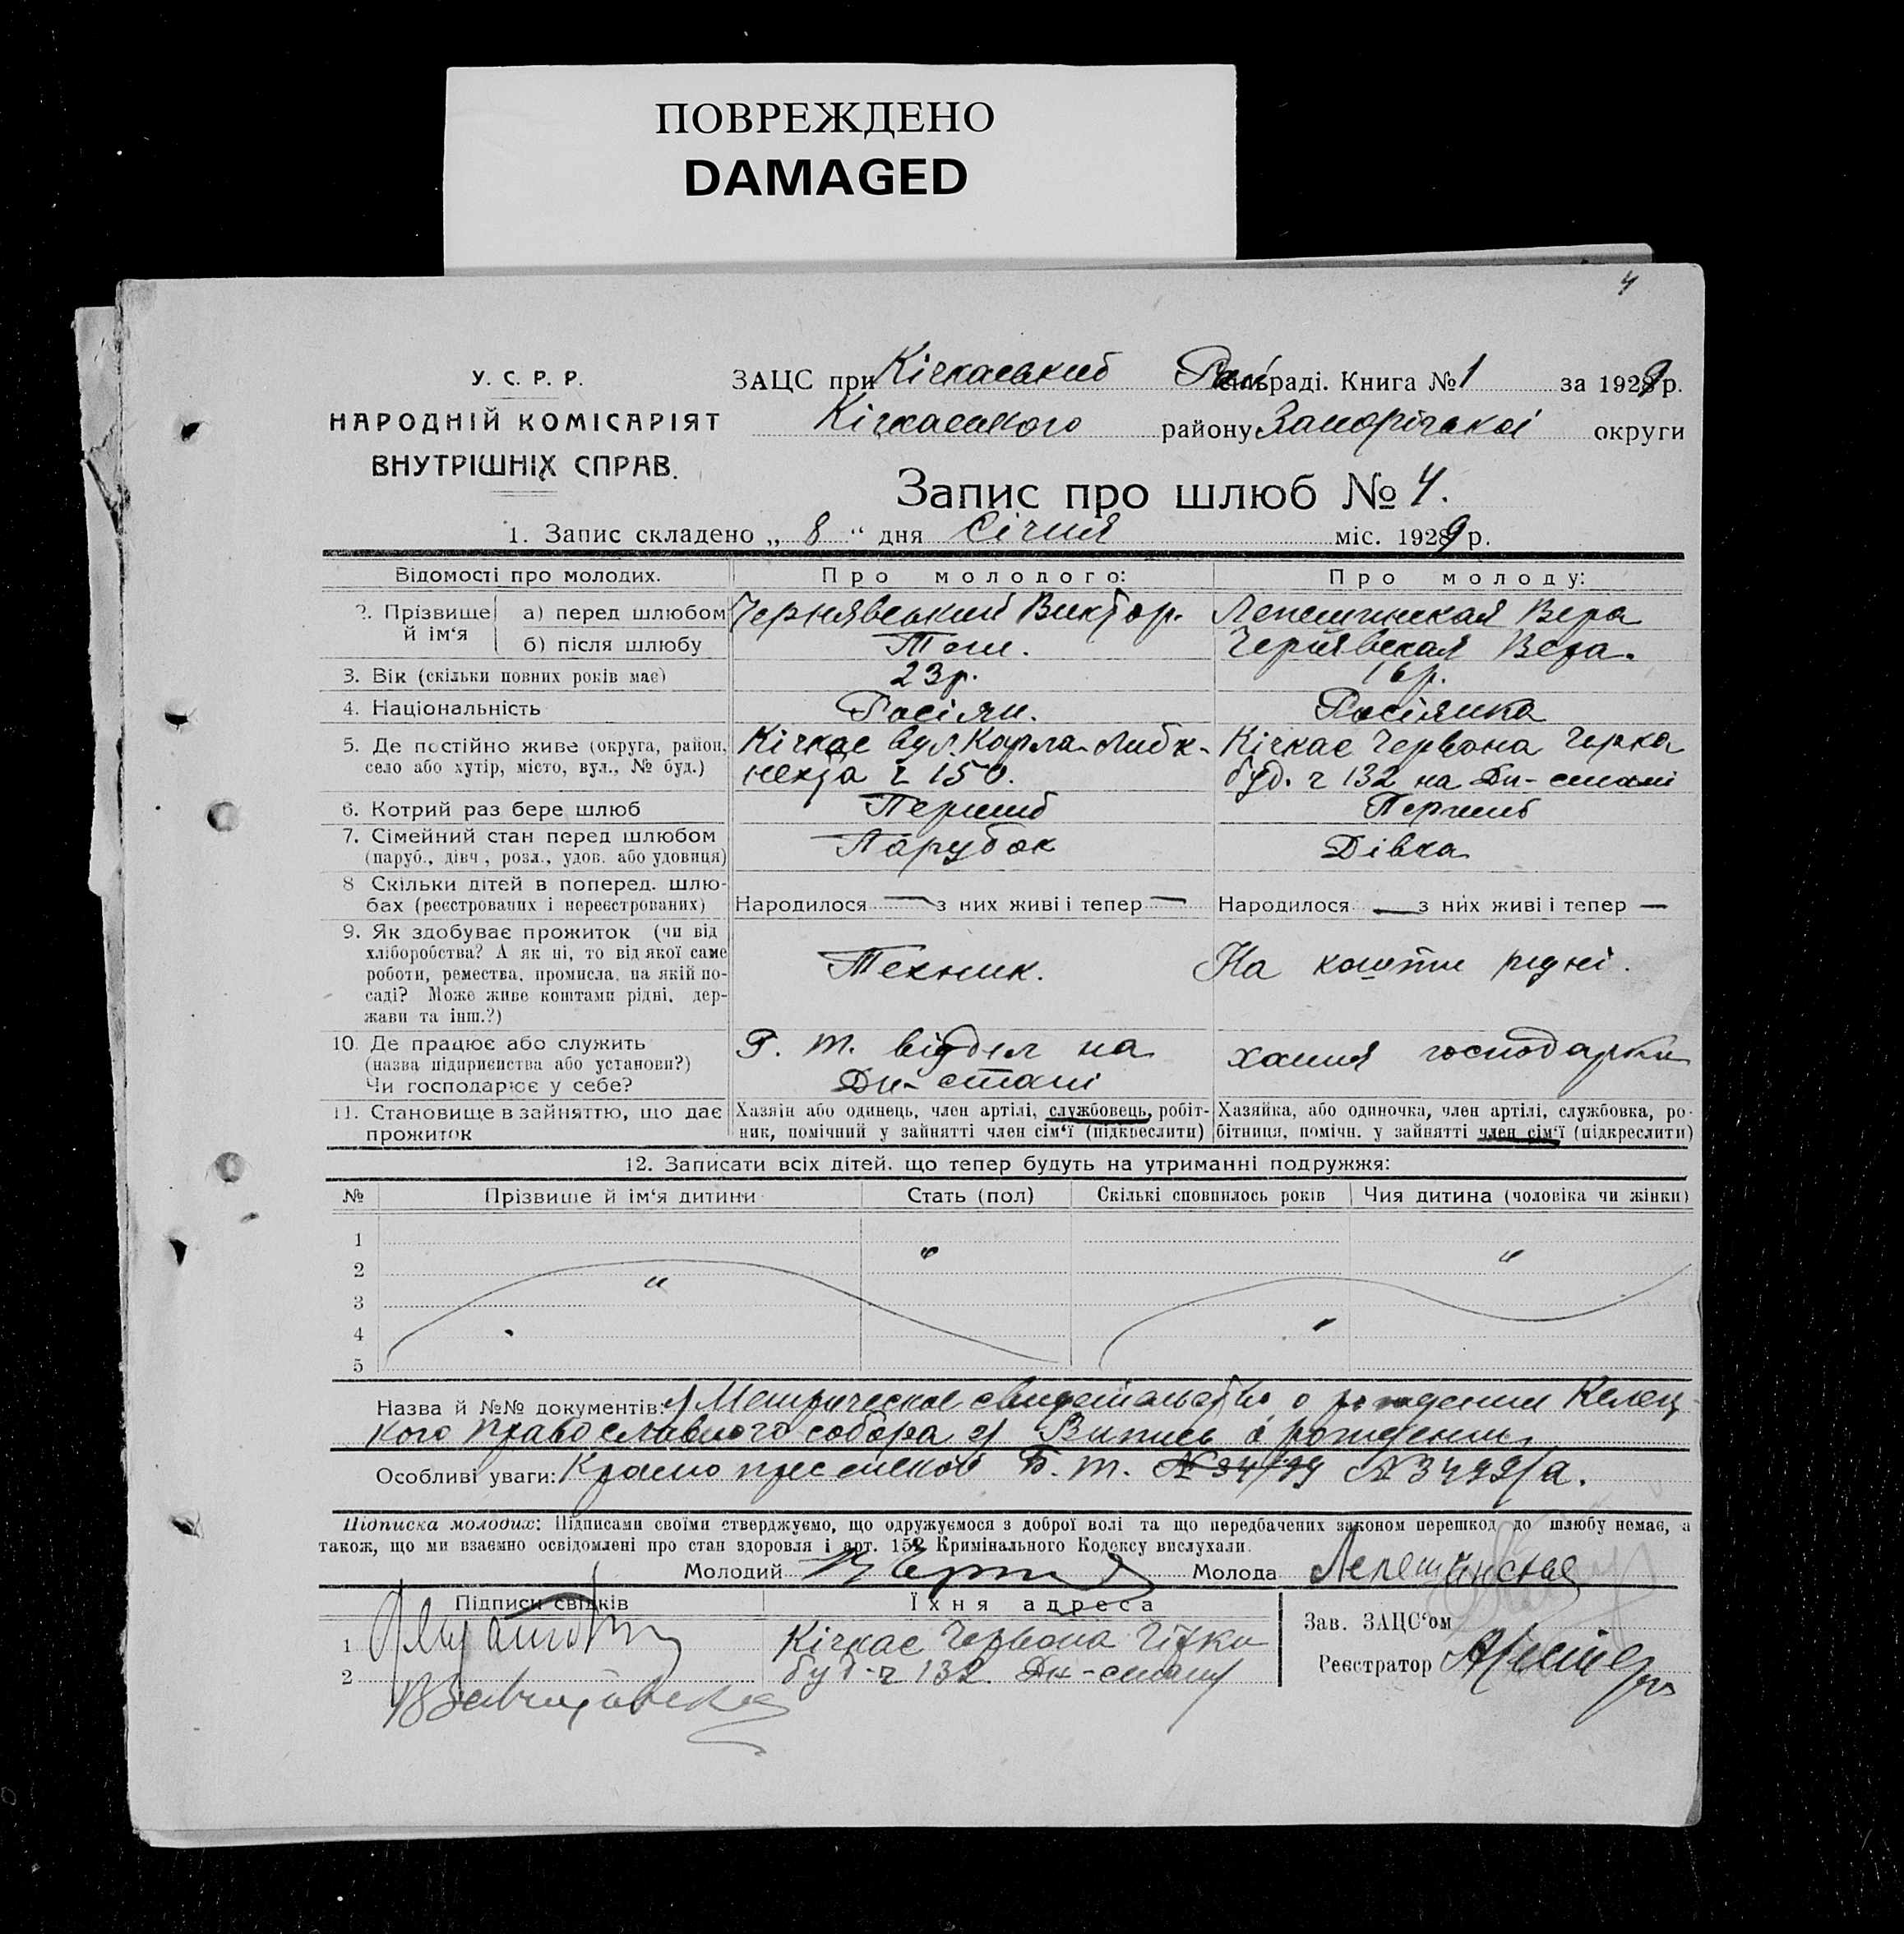 ПОВРЕЖДЕНО
DAMAGED
4
У. С. Р. Р.
НАРОДНІЙ КОМІСАРІЯТ
ВНУТРІШНІХ СПРАВ.
ЗАЦС при Кічкаський Рай сільраді. Книга № 1 за 1929 р.
Кічкаського району Запорізької округи
Запис про шлюб № 4.
1. Запис складено „ 8 “ дня Січня міс. 1929 р.
Відомості про молодих.
Про молодого:
Про молоду:
2. Прізвище й ім‘я
а) перед шлюбом
Чернявський Виктор.
Лепешинская Вера
б) після шлюбу
Теж.
Чернявская Вера.
3. Вік (скільки повних років має)
23 р.
16 р.
4. Національність
Росіян.
Росіянка
5. Де постійно живе (округа, район,
село або хутір, місто, вул., № буд.)
Кічкас вул. Карла-Либк-
нехта ч 150.
Кічкас Червона
буд. ч 132 на Дн-стані
6. Котрий раз бере шлюб
Перший
Перший
7. Сімейний стан перед шлюбом
(паруб., дівч., розл., удов. або удовиця)
Парубок
Дівка
8 Скільки дітей в поперед. шлю-
бах (реєстрованих і нереєстрованих)
Народилося — з них живі і тепер —
Народилося — з них живі і тепер —
9. Як здобуває прожиток (чи від
хліборобства? А як ні, то від якої саме
роботи, ремества, промисла, на якій по-
саді? Може живе коштами рідні, дер-
жави та інш.?)
Технік.
На кошти рідні.
10. Де працює або служить
(назва підприємства або установи?)
Чи господарює у себе?
Р. т. відділ на
Дн-стані
хатня господарка
11. Становище в зайняттю, що дає
прожиток
Хазяїн або одинець, член артілі, службовець, робіт-
ник, помічний у зайнятті член сім‘ї (підкреслити)
Хазяйка, або одиночка, член артілі, службовка, ро-
бітниця, помічн. у зайнятті член сім‘ї (підкреслити)
12. Записати всіх дітей, що тепер будуть на утриманні подружжя:
№
Прізвище й ім‘я дитини
Стать (пол)
Скількі сповнилось років
Чия дитина (чоловіка чи жінки)
1
2
3
4
5
Назва й №№ документів: Метрическое свидетельство о рождении Келец-
кого православного собора Випись о рождении
Особливі уваги: Б. т. № 3499/а.
Підписка молодих: Підписами своїми стверджуємо, що одружуємося з доброї волі та що передбачених законом перешкод до шлюбу немає, а
також, що ми взаємно освідомлені про стан здоровля і арт. 152 Кримінального Кодексу вислухали.
Молодий
Молода Лепешинская
Підписи свідків
Їхня адреса
1
Кічкас Червона
2
буд. ч 132. Дн-стану
Зав. ЗАЦС‘ом
Реєстратор